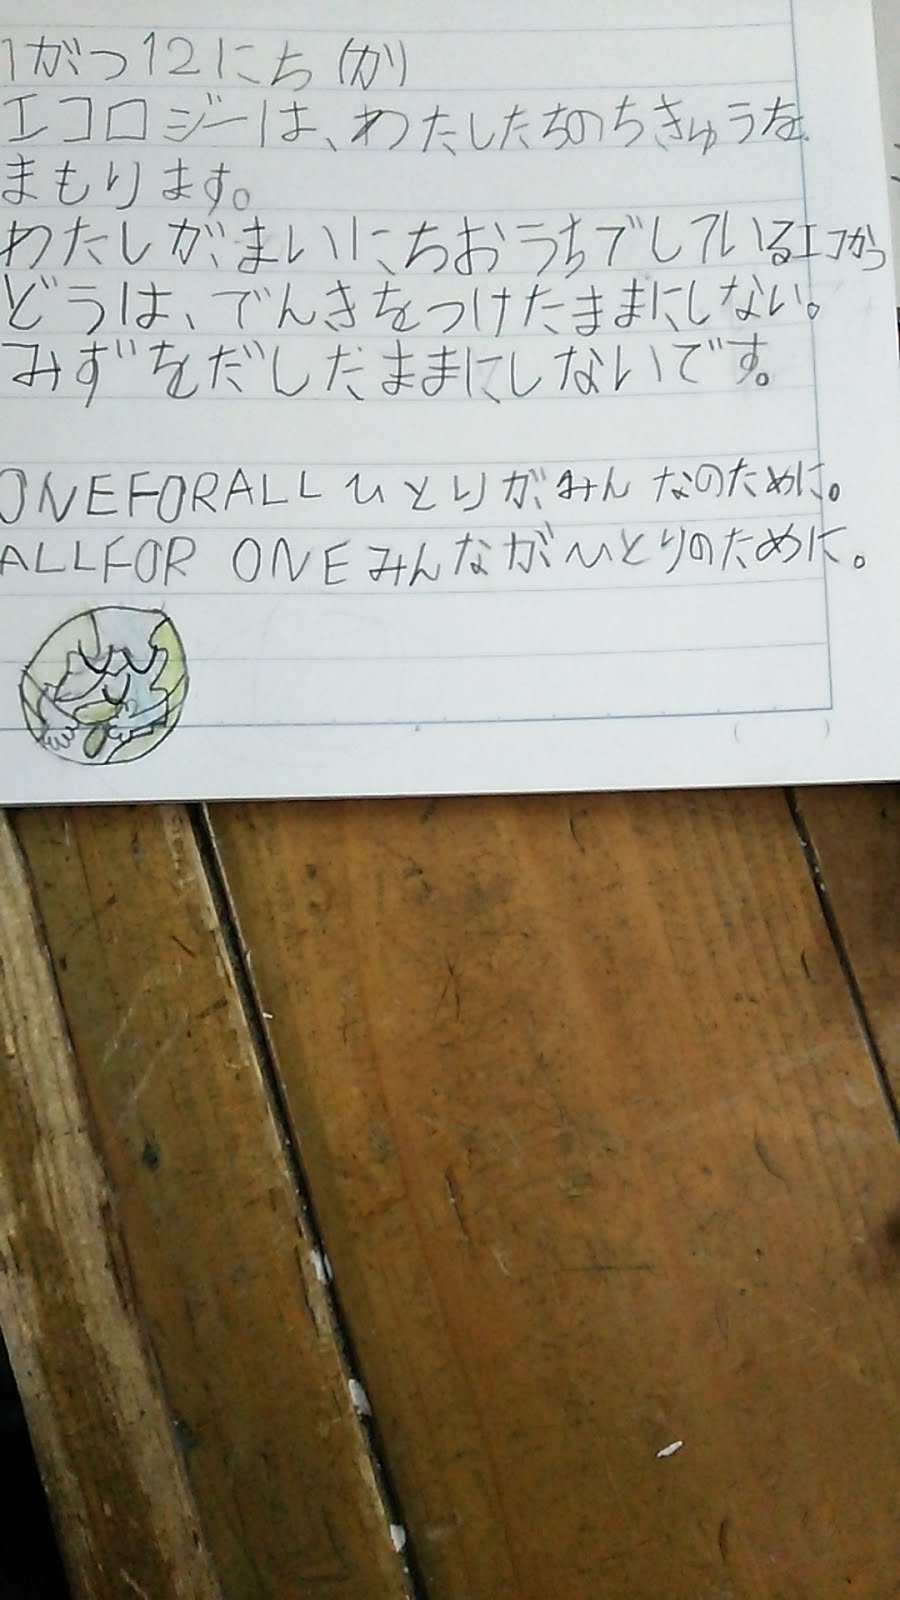 1がつ12にち(か)
エコロジーは、わたしたちのちきゅうを
まもります。
わたしがまいにちおうちでしているエコかつ
どうは、でんきをつけたままにしない。
みずをだしたままにしないです。
ONEFORALL ひとりがみんなのために。
ALLFOR ONEみんながひとりのために。